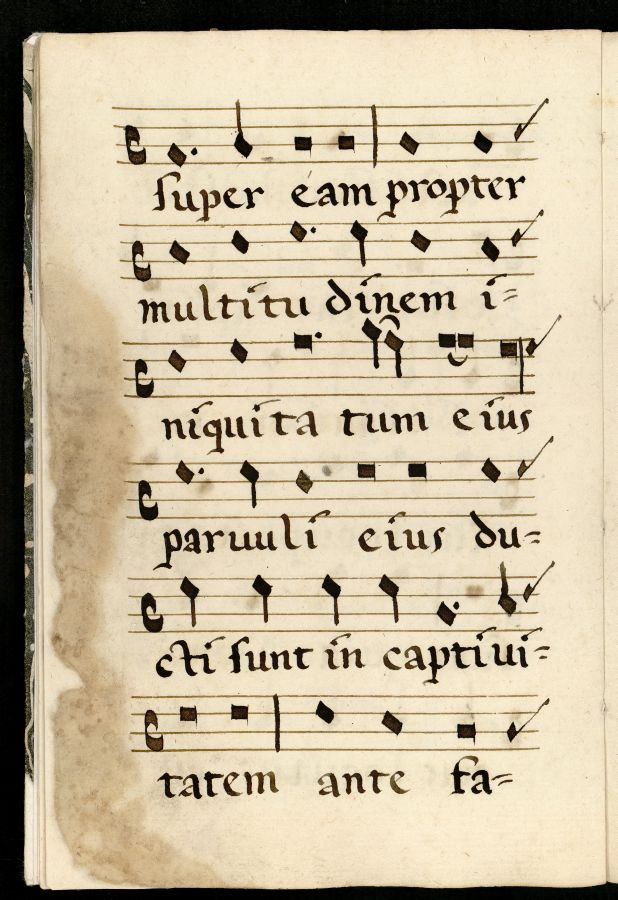 super eam propter
multitu dinem i=
niquita tum eius
paruuli eius du=
cti sunt in captiui=
tatem ante fa=